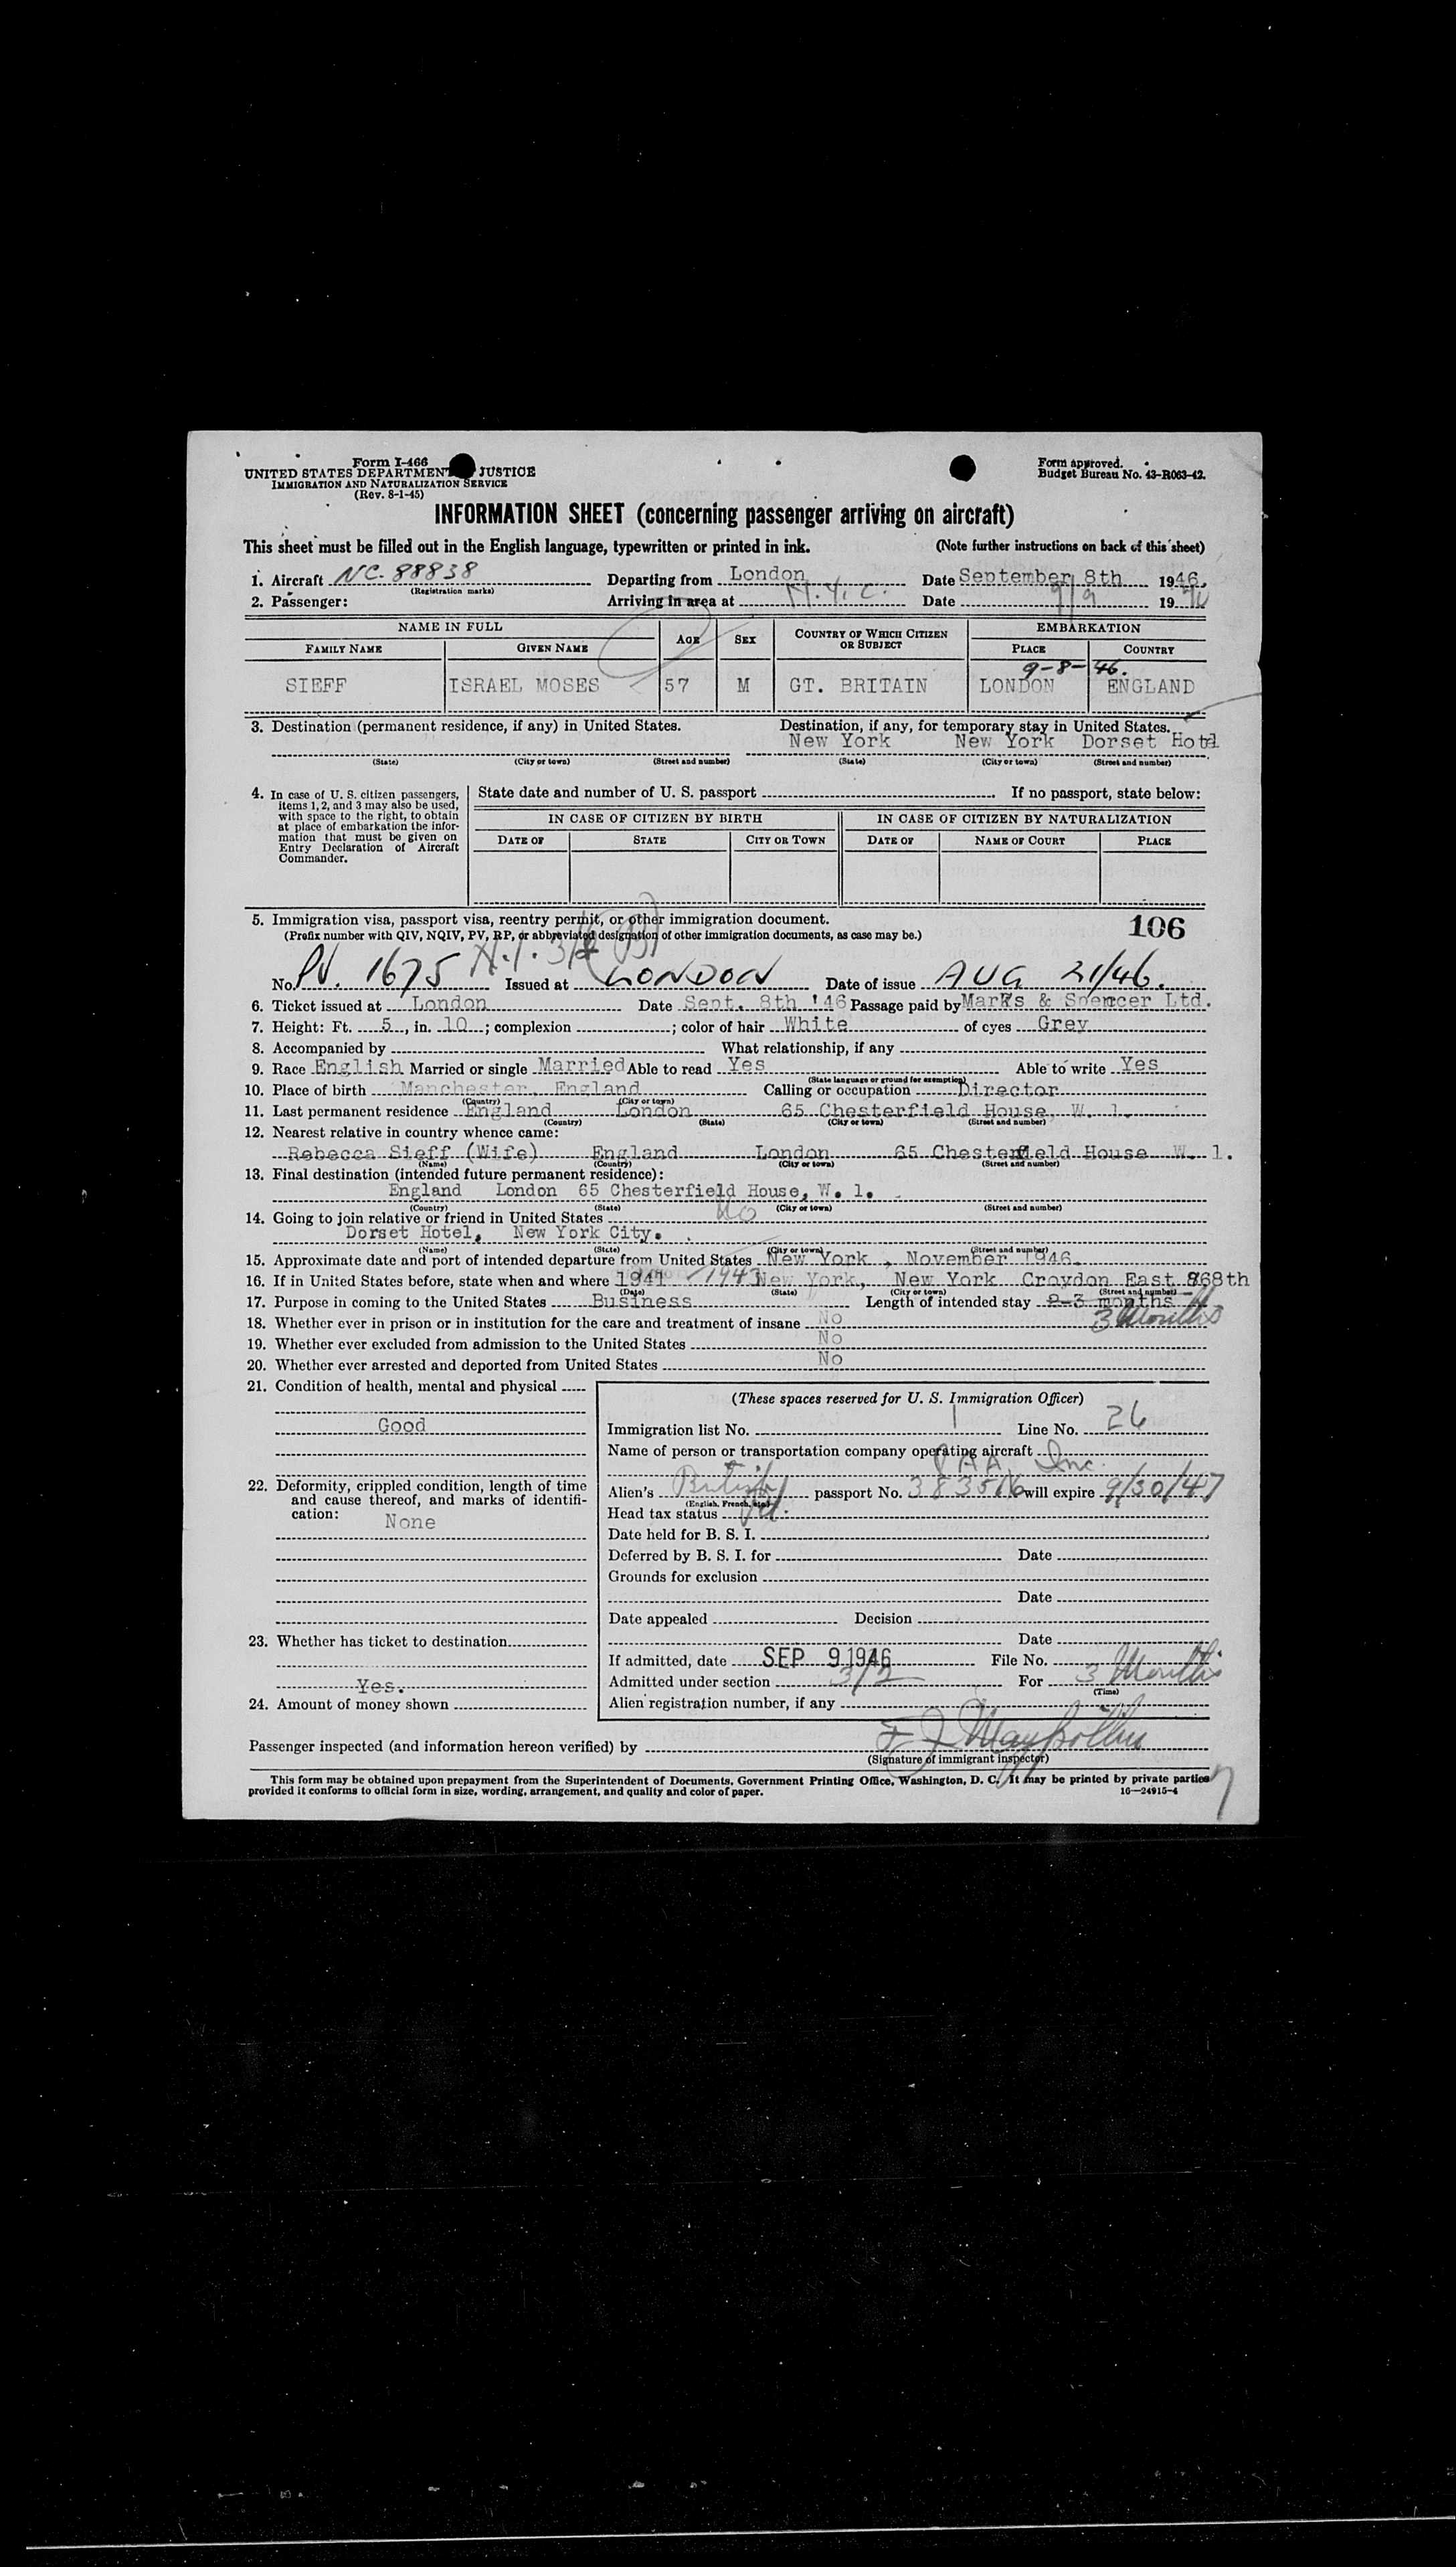 Form I-466
UNITED STATES DEPARTMENT JUSTICE
IMMIGRATION AND NATURALIZATION SERVICE
(Rev. 8-1-45)
Form approved.
Budget Bureau No. 43-R063-42.
INFORMATION SHEET (concerning passenger arriving on aircraft)
This sheet must be filled out in the English language, typewritten or printed in ink. (Note further instructions on back of this sheet)
1. Aircraft NC-88838 Departing from London Date September 8th 1946.
(Registration marks)
2. Passenger: Arriving in area at N.Y.C. Date 9/9 19
NAME IN FULL AGE SEX COUNTRY OF WHICH CITIZEN OR SUBJECT EMBARKATION
FAMILY NAME GIVEN NAME PLACE COUNTRY
9-8-46.
SIEFF ISRAEL MOSES 57 M GT. BRITAIN LONDON ENGLAND
3. Destination (permanent residence, if any) in United States. Destination, if any, for temporary stay in United States.
New York New York Dorset Hotel
(State) (City or town) (Street and number) (State) (City or town) (Street and number)
4. In case of U. S. citizen passengers, items 1, 2, and 3 may also be used, with space to the right, to obtain at place of embarkation the information that must be given on Entry Declaration of Aircraft Commander.
State date and number of U. S. passport If no passport, state below:
IN CASE OF CITIZEN BY BIRTH IN CASE OF CITIZEN BY NATURALIZATION
DATE OF STATE CITY OR TOWN DATE OF NAME OF COURT PLACE
5. Immigration visa, passport visa, reentry permit, or other immigration document. 106
(Prefix number with QIV, NQIV, PV, RP, or abbreviated designation of other immigration documents, as case may be.)
No. PV. 1675 Issued at LONDON Date of issue AUG 21/46.
6. Ticket issued at London Date Sept. 8th '46 Passage paid by Marks & Spencer Ltd.
7. Height: Ft. 5, in. 10; complexion ; color of hair White of eyes Grey
8. Accompanied by What relationship, if any
9. Race English Married or single Married Able to read Yes Able to write Yes
(State language or ground for exemption)
10. Place of birth Manchester, England Calling or occupation Director
(Country) (City or town)
11. Last permanent residence England London 65 Chesterfield House, W. 1.
(Country) (State) (City or town) (Street and number)
12. Nearest relative in country whence came:
Rebecca Sieff (Wife) England London 65 Chesterfield House W. 1.
(Name) (Country) (City or town) (Street and number)
13. Final destination (intended future permanent residence):
England London 65 Chesterfield House, W. 1.
(Country) (State) (City or town) (Street and number)
14. Going to join relative or friend in United States No
Dorset Hotel, New York City.
(Name) (State) (City or town) (Street and number)
15. Approximate date and port of intended departure from United States New York, November 1946.
16. If in United States before, state when and where 1941 1943 New York, New York Croydon East 868th
(Date) (State) (City or town) (Street and number)
17. Purpose in coming to the United States Business Length of intended stay 2-3 months
3 Months
18. Whether ever in prison or in institution for the care and treatment of insane No
19. Whether ever excluded from admission to the United States No
20. Whether ever arrested and deported from United States No
21. Condition of health, mental and physical
Good
22. Deformity, crippled condition, length of time and cause thereof, and marks of identification:
None
23. Whether has ticket to destination
Yes.
24. Amount of money shown
(These spaces reserved for U. S. Immigration Officer)
Immigration list No. 1 Line No. 26
Name of person or transportation company operating aircraft
PAA Inc.
Alien's British passport No. 383516 will expire 9/30/47
(English, French, etc.)
Head tax status
Date held for B. S. I.
Deferred by B. S. I. for Date
Grounds for exclusion
Date
Date appealed Decision
Date
If admitted, date SEP 9 1946 File No.
Admitted under section 3/2 For 3 Months
(Time)
Alien registration number, if any
Passenger inspected (and information hereon verified) by
(Signature of immigrant inspector)
This form may be obtained upon prepayment from the Superintendent of Documents, Government Printing Office, Washington, D. C. It may be printed by private parties
provided it conforms to official form in size, wording, arrangement, and quality and color of paper. 16—24915-4